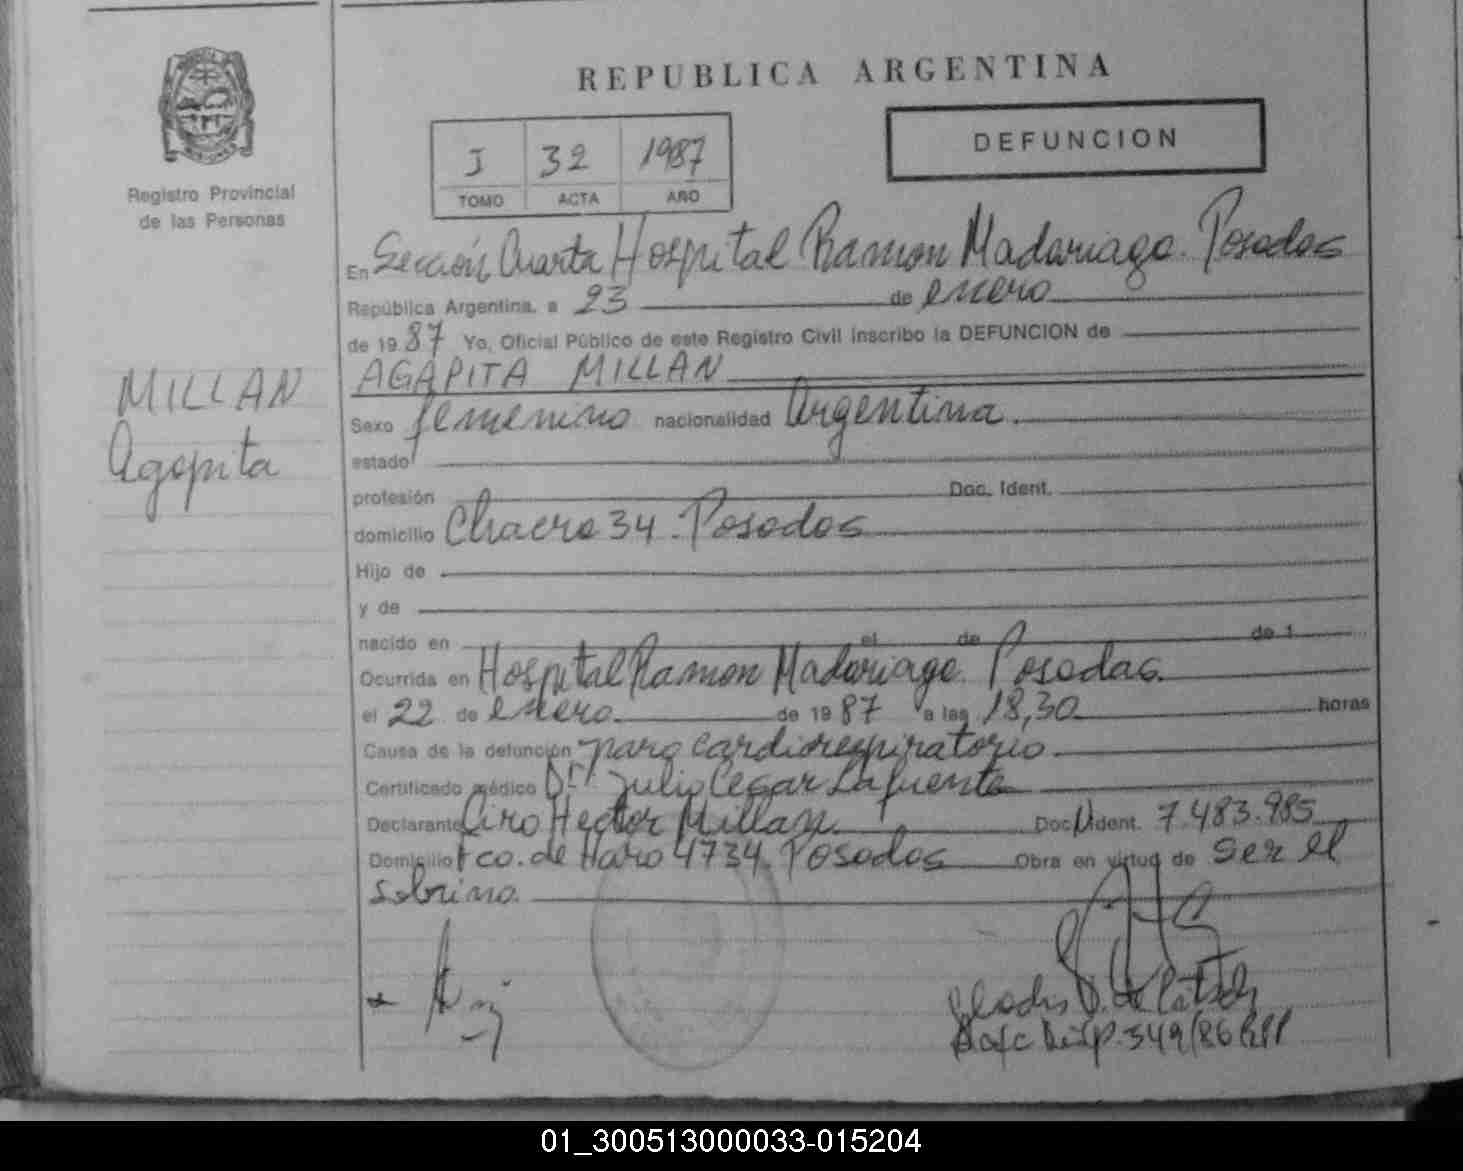 REPUBLICA ARGENTINA
DEFUNCION
J 32 1987
TOMO ACTA AÑO
Registro Provincial
de las Personas
MILLAN
Agapita
En Sección Cuarta Hospital Ramon Madariaga. Posadas
República Argentina, a 23 de enero
de 1987 Yo, Oficial Público de este Registro Civil inscribo la DEFUNCION de
AGAPITA MILLAN
Sexo femenino nacionalidad Argentina.
estado
profesión Doc. Ident.
domicilio Chacra 34. Posadas
Hijo de
y de
nacido en el de de 1
Ocurrida en Hospital Ramon Madariaga. Posadas.
el 22 de enero de 1987 a las 18,30 horas
Causa de la defunción paro cardiorespiratorio
Certificado médico Dr. Julio Cesar Lafuente
Declarante Ciro Hector Millan Doc. Ident. 7.483.985
Domicilio Fco. de Haro 4734. Posadas Obra en virtud de ser el
sobrino.
349/86
01_300513000033-015204